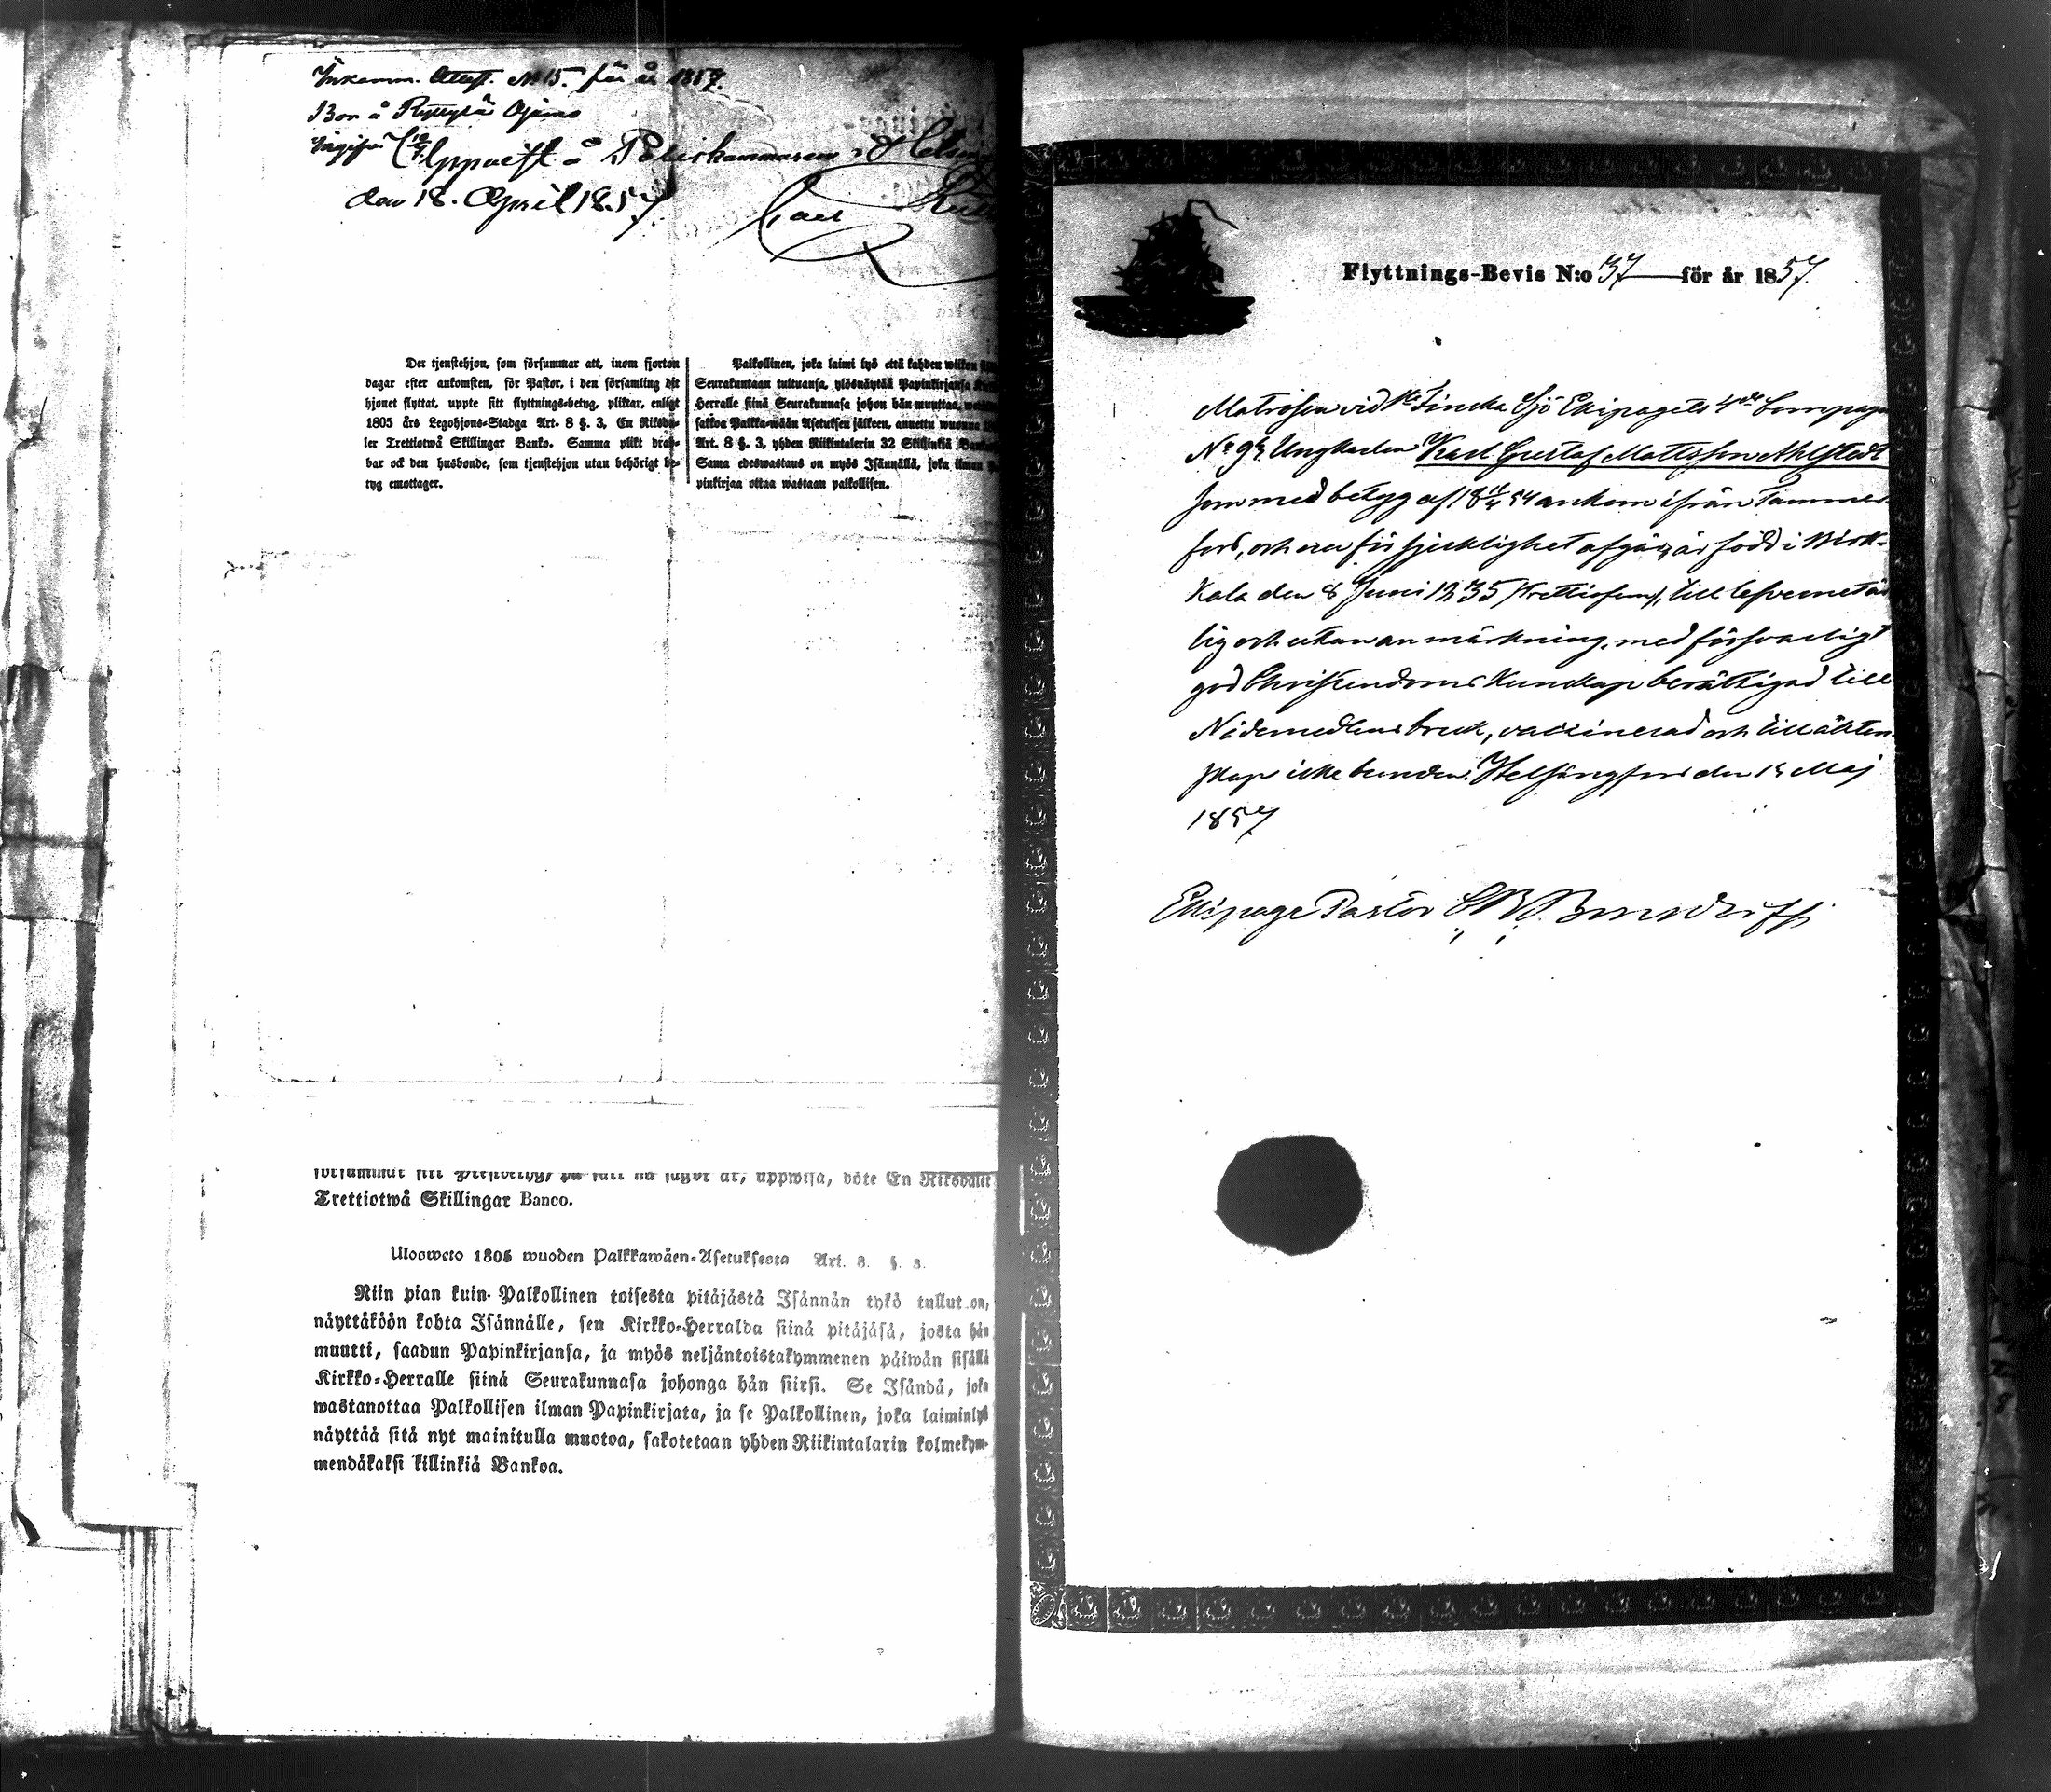 Inkomm. Attest. No 15. för år 1857.
Bor å Ryttylä
den 18. April 1857.
Carl
Der tjenstehjon, som försummar att, inom fjorton
dagar efter ankomsten, för Pastor, i den församling dit
hjonet flyttat, uppte sitt flyttnings-betyg, pliktar, enligt
1805 års Legohjons-Stadga Art. 8 §. 3, En Riksda-
ler Trettiotwå Skillingar Banko. Samma plikt drab-
bar ock den husbonde, som tjenstehjon utan behörigt be-
tyg emottager.
Palkollinen, joka laimi lyö että kahden wiikon
Seurakuntaan tultuansa, ylösnäytää Papinkirjansa
Herralle siinä Seurakunnasa johon hän muuttaa,
sakkoa Palkka-wään Asetuksen jälkeen, annettu wuonna
Art. 8 §. 3, yhden Riikintalerin 32 Skillinkiä
Sama edeswastaus on myös Isännällä, joka ilman
pinkirjaa ottaa wastaan palkollisen.
uppwisa, böte En Riksdaler
Trettiotwå Skillingar Banco.
Ulosweto 1805 wuoden Palkkawäen-Asetuksesta Art. 8. §. 3.
Niin pian kuin Palkollinen toisesta pitäjästä Isännän tykö tullut on,
näyttäköön kohta Isännälle, sen Kirkko-Herralda siinä pitäjäsä, josta hän
muutti, saadun Papinkirjansa, ja myös neljäntoistakymmenen päiwän sisällä
Kirkko-Herralle siinä Seurakunnasa johonga hän siirsi. Se Isändä, joka
wastanottaa Palkollisen ilman Papinkirjata, ja se Palkollinen, joka laiminlyö
näyttää sitä nyt mainitulla muotoa, sakotetaan yhden Riikintalarin kolmekym-
mendäkaksi killinkiä Bankoa.
Flyttnings-Bevis N:o 37 för år 1857.
Matrosen vid Finska Sjö Ekipagets 4de Compagn
No 95 Ungkarlen Karl Gustaf Mattsson Ahlstedt
som med betyg af 18 54 ankom ifrån Tammer-
fors, och nu för sjuklighet afgår, är född i Birk-
kala den 8 Juni 1835 (trettiofem), till lefvernet är
lig och utan anmärkning, med försvarligt
god Christendoms kunskap berättigad till
Nådemedlens bruk, vaccinerad och till äkten-
skap icke bunden. Helsingfors den 15 Maj
1857
Ekipage Pastor